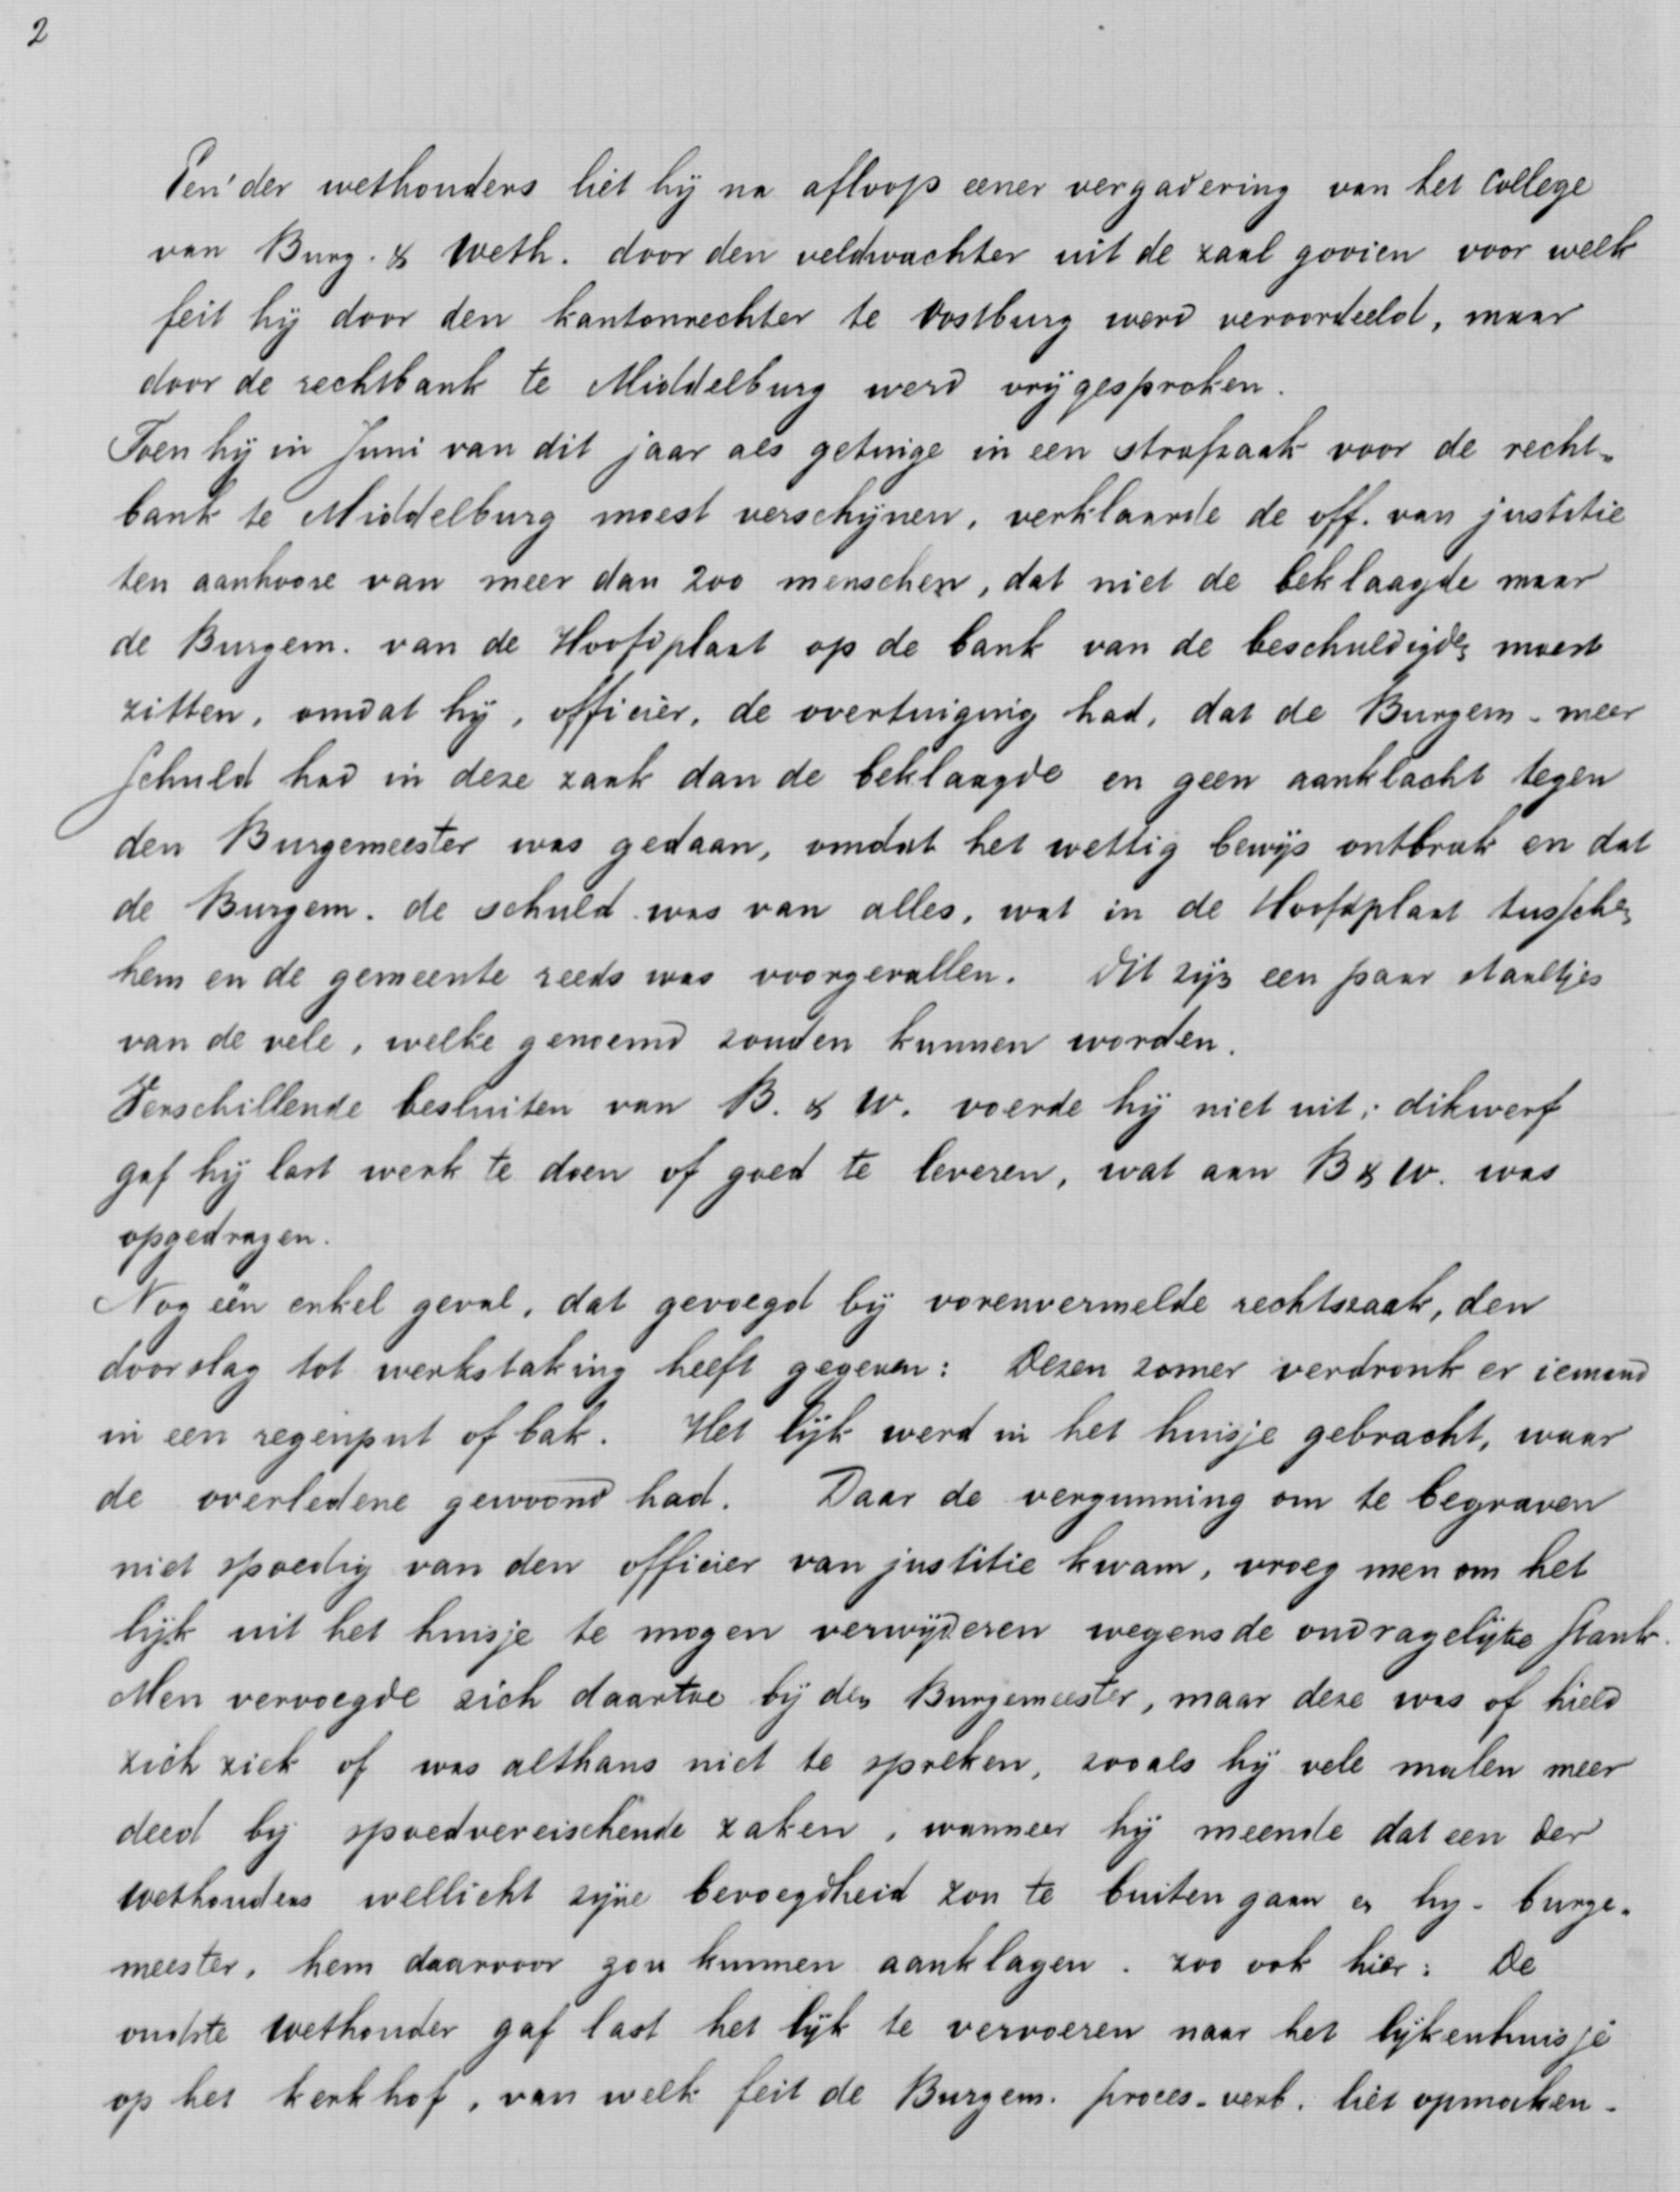 2
Een' der wethouders liet hij na afloop eener vergadering van het College
van Burg. & Weth. door den veldwachter uit de zaal gooien voor welk
feit hij door den kantonrechter te Oostburg werd veroordeeld, maar
door de rechtbank te Middelburg werd vrijgesproken.
Toen hij in Juni van dit jaar als getuige in een strafzaak voor de recht-
bank te Middelburg moest verschijnen, verklaarde de off. van justitie
ten aanhoore van meer dan 200 menschen, dat niet de beklaagde maar
de Burgem. van de Hoofdplaat op de bank van de beschuldigden moest
zitten, omdat hij, officier, de overtuiging had, dat de Burgem. meer
schuld had in deze zaak dan de beklaagde en geen aanklacht tegen
den Burgemeester was gedaan, omdat het wettig bewijs ontbrak en dat
de Burgem. de schuld was van alles, wat in de Hoofdplaat tusschen
hem en de gemeente reeds was voorgevallen. Dit zijn een paar staaltjes
van de vele, welke genoemd zouden kunnen worden.
Verschillende besluiten van B. & W. voerde hij niet uit; dikwerf
gaf hij last werk te doen of goed te leveren, wat aan B & W. was
opgedragen.
Nog één enkel geval, dat gevoegd bij vorenvermelde rechtszaak, den
doorslag tot werkstaking heeft gegeven: Dezen zomer verdronk er iemand
in een regenput of bak. Het lijk werd in het huisje gebracht, waar
de overledene gewoond had. Daar de vergunning om te begraven
niet spoedig van den officier van justitie kwam, vroeg men om het
lijk uit het huisje te mogen verwijderen wegens de ondragelijke stank.
Men vervoegde zich daartoe bij den Burgemeester, maar deze was of hield
zich ziek of was althans niet te spreken, zooals hij vele malen meer
deed bij spoedvereischende zaken, wanneer hij meende dat een der
wethouders wellicht zijne bevoegdheid zou te buiten gaan en hij - burge-
meester, hem daarvoor zou kunnen aanklagen. Zoo ook hier: De
oudste wethouder gaf last het lijk te vervoeren naar het lijkenhuisje
op het kerkhof, van welk feit de Burgem. proces-verb. liet opmaken.